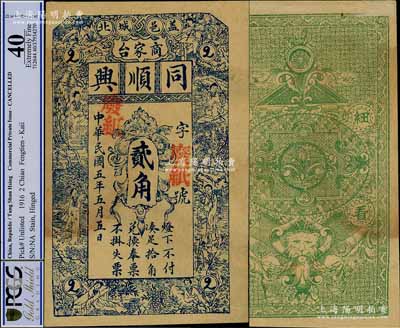 China, Republic / Tung Shun Hsing Commercial Private Issue - CANCELLED
Pick# Unlisted 1916 2 Chiao Fengtien - Kaii
S/N:NA Stain, Hinged
40
Extremely Fine
PCGS
Gold Shield
北
商家台
同順興
2
2
字
號
廢紙
廢紙
貳角
中華民國五年五月五日
燈下不付
湊足拾角
兌換奉票
不掛失票
2
2
上海阳明拍卖